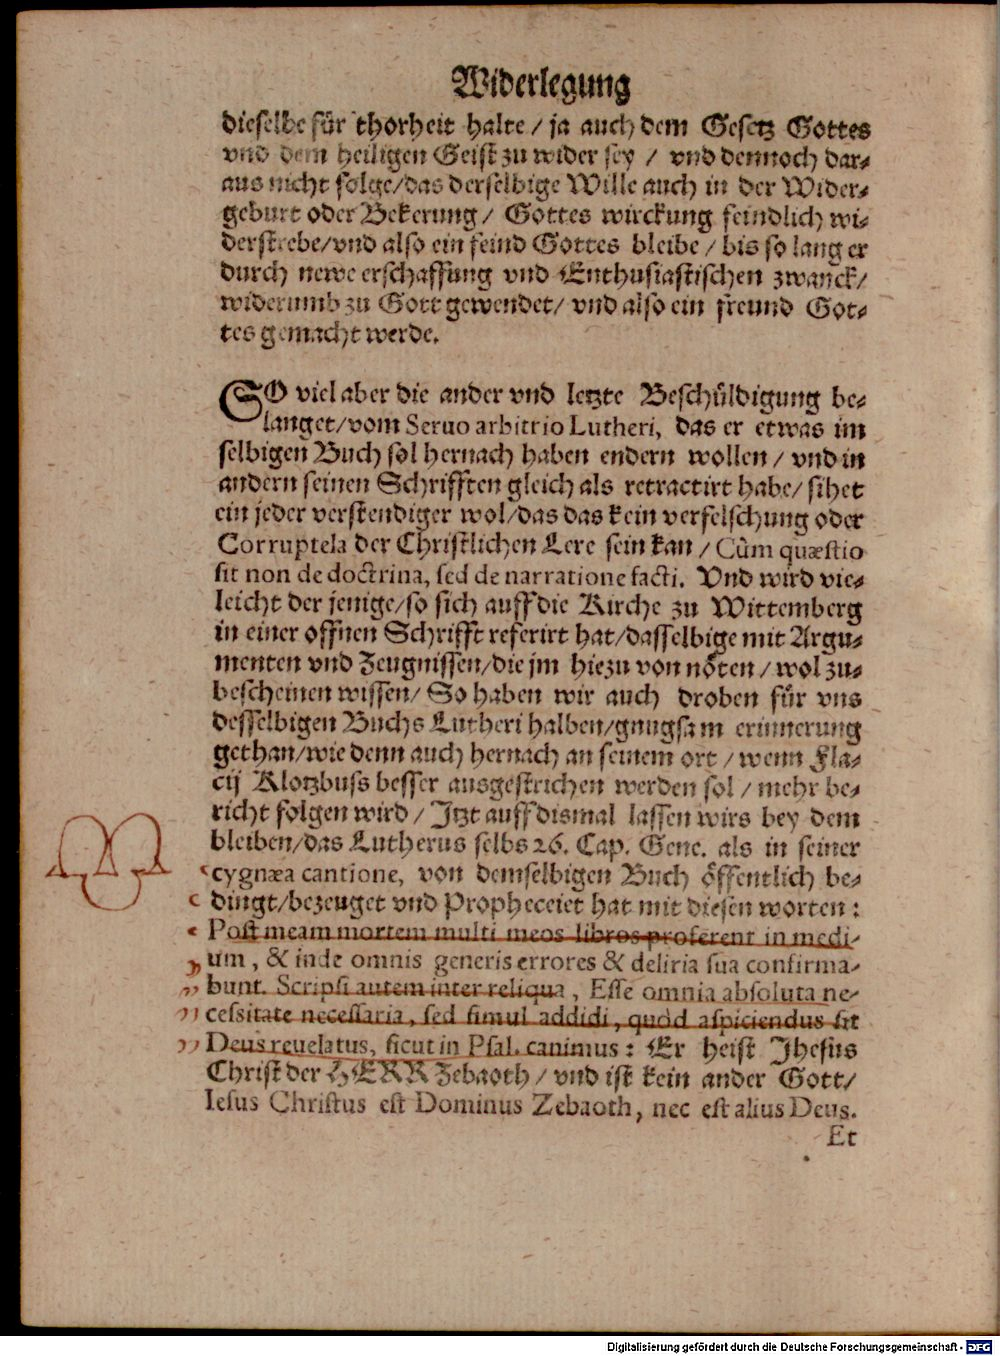 Widerlegung
dieselbe für thorheit halte / ja auch dem Gesetz Gottes
vnd dem heiligen Geist zu wider sey / vnd dennoch dar-
aus nicht folge/das derselbige Wille auch in der Wider-
geburt oder Bekerung/ Gottes wirckung feindlich wi-
derstrebe/vnd also ein feind Gottes bleibe / bis so lang er
durch newe erschaffung vnd Enthusiastischen zwanck/
widerumb zu Gott gewendet/ vnd also ein freund Got-
tes gemacht werde.
SO viel aber die ander vnd letzte Beschüldigung be-
langet/vom Seruo arbitrio Lutheri, das er etwas im
selbigen Buch sol hernach haben endern wollen / vnd in
andern seinen Schrifften gleich als retractirt habe/ sihet
ein jeder verstendiger wol/das das kein verfelschung oder
Corruptela der Christlichen Lere sein kan / Cùm quæstio
sit non de doctrina, sed de narratione facti. Vnd wird vie-
leicht der jenige/so sich auff die Kirche zu Wittemberg
in einer offnen Schrifft referirt hat/dasselbige mit Argu-
menten vnd Zeugnissen/die jm hiezu von nöten / wol zu-
bescheinen wissen/ So haben wir auch droben für vns
desselbigen Buchs Lutheri halben/gnugsam erinnerung
gethan/wie denn auch hernach an seinem ort / wenn Fla-
cij Klotzbuss besser ausgestrichen werden sol / mehr be-
richt folgen wird / Jtzt auff dismal lassen wirs bey dem
bleiben/das Lutherus selbs 26. Cap. Gene. als in seiner
cygnæa cantione, von demselbigen Buch öffentlich be-
dingt/bezeuget vnd Propheceiet hat mit diesen worten:
Post meam mortem multi meos libros proferent in medi-
um, & inde omnis generis errores & deliria sua confirma-
bunt. Scripsi autem inter reliqua, Esse omnia absoluta ne-
cessitate necessaria, sed simul addidi, quòd aspiciendus sit
Deus reuelatus, sicut in Psal. canimus: Er heist Jhesus
Christ der HERR Zebaoth / vnd ist kein ander Gott/
Iesus Christus est Dominus Zebaoth, nec est alius Deus.
Et
Digitalisierung gefördert durch die Deutsche Forschungsgemeinschaft - DFG